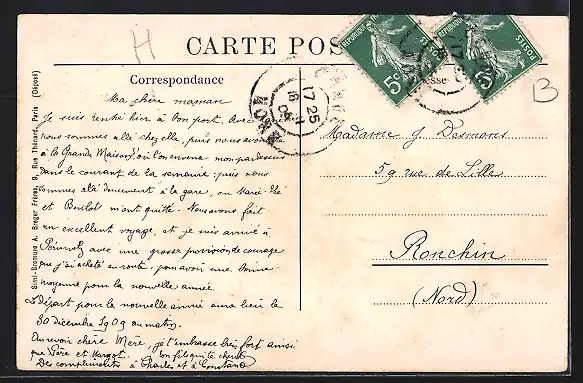 H
CARTE POS
Correspondance
esse
B
Simi-Bromure A. Breger Frères, 9, Rue Thénard, Paris (Déposé)
REPUBLIQUE
POSTES
5c
17 25
16 -11
09
Ma chère maman
Je suis rentré hier à bon port. Avec
nous sommes allé chez elle, puis nous avons
à la Grande Maison où l'on enverra mon pardessus
dans le courant de la semaine; puis nous
sommes allé doucement à la gare, où
et Boulot m'ont quitté. Nous avons fait
un excellent voyage, et je suis arrivé à
avec une grosse provision de courage
que j'ai acheté en route, pour avoir une bonne
moyenne pour la nouvelle année.
Le Départ pour la nouvelle année aura lieu le
30 décembre 1909 au matin.
Au revoir chère Mère, je t'embrasse bien fort ainsi
que Père et Margot. Ton fils qui te chérit
Des compliments à Charles et à Constand
Madame J. Desmons
59 rue de Lille
Ronchin
(Nord)